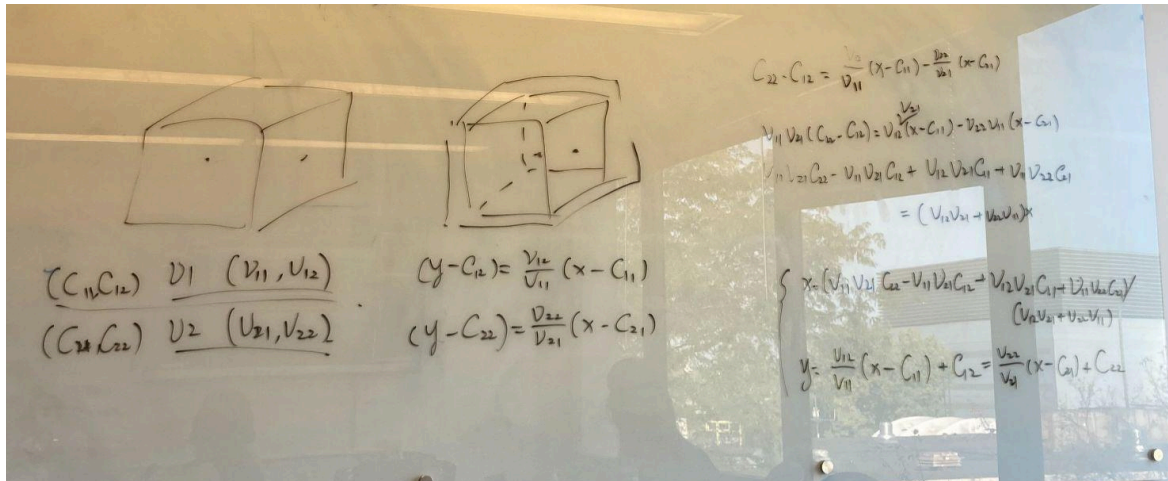 (C₁₁C₁₂) v1 (v₁₁, v₁₂)
(C₂₁,C₂₂) v2 (v₂₁, v₂₂)
(y-C₁₂) = v₁₂/v₁₁ (x-C₁₁)
(y-C₂₂) = v₂₂/v₂₁ (x-C₂₁)
C₂₂-C₁₂ = /v₁₁ (x-C₁₁) - v₂₂/v₂₁ (x-C₂₁)
v₁₁ v₂₁ (C₂₂-C₁₂) = v₁₂ v₂₁ (x-C₁₁) - v₂₂ v₁₁ (x-C₂₁)
v₂₁ C₂₂ - v₁₁ v₂₁ C₁₂ + v₁₂ v₂₁ C₁₁ + v₁₁ v₂₂ C₂₁
= (v₁₂ v₂₁ + v₂₂ v₁₁) x
x = (v₁₁ v₂₁ C₂₂ - v₁₁ v₂₁ C₁₂ + v₁₂ v₂₁ C₁₁ + v₁₁ v₂₂ C₂₁)/
(v₁₂ v₂₁ + v₂₂ v₁₁)
y = v₁₂/v₁₁ (x-C₁₁) + C₁₂ = v₂₂/v₂₁ (x-C₂₁) + C₂₂